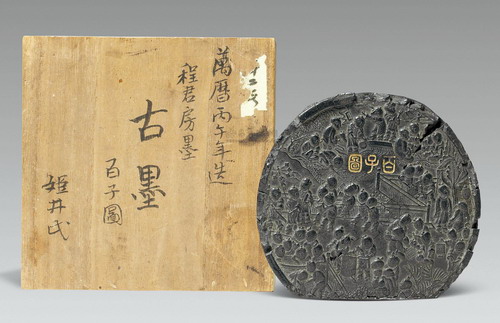 萬曆丙午年造
程君房墨
古墨
百子圖
姬井氏
百子圖